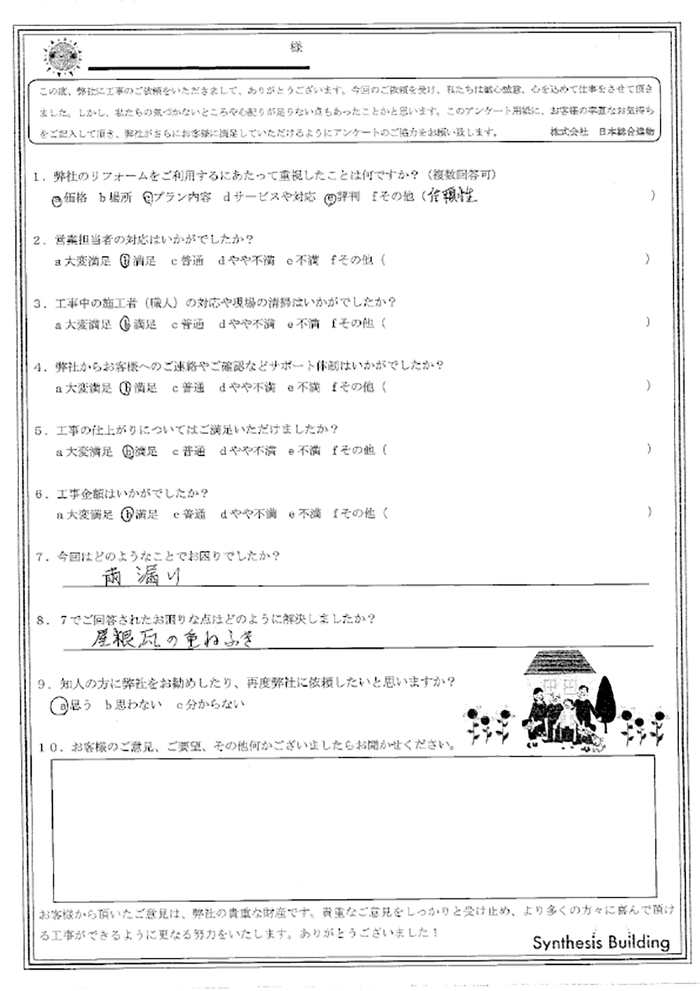 様
この度、弊社に工事のご依頼をいただきまして、ありがとうございます。今回のご依頼を受け、私たちは誠心誠意、心を込めて仕事をさせて頂き
ました。しかし、私たちの気づかないところや心配りが足りない点もあったことかと思います。このアンケート用紙に、お客様の率直なお気持ち
をご記入して頂き、弊社がさらにお客様に満足していただけるようにアンケートのご協力をお願い致します。 株式会社 日本総合建物
1．弊社のリフォームをご利用するにあたって重視したことは何ですか？（複数回答可）
a価格 b場所 cプラン内容 dサービスや対応 e評判 fその他（信頼性 ）
2．営業担当者の対応はいかがでしたか？
a大変満足 b満足 c普通 dやや不満 e不満 fその他（ ）
3．工事中の施工者（職人）の対応や現場の清掃はいかがでしたか？
a大変満足 b満足 c普通 dやや不満 e不満 fその他（ ）
4．弊社からお客様へのご連絡やご確認などサポート体制はいかがでしたか？
a大変満足 b満足 c普通 dやや不満 e不満 fその他（ ）
5．工事の仕上がりについてはご満足いただけましたか？
a大変満足 b満足 c普通 dやや不満 e不満 fその他（ ）
6．工事金額はいかがでしたか？
a大変満足 b満足 c普通 dやや不満 e不満 fその他（ ）
7．今回はどのようなことでお困りでしたか？
雨漏り
8．7でご回答されたお困りな点はどのように解決しましたか？
屋根瓦の重ねふき
9．知人の方に弊社をお勧めしたり、再度弊社に依頼したいと思いますか？
a思う b思わない c分からない
10．お客様のご意見、ご要望、その他何かございましたらお聞かせください。
お客様から頂いたご意見は、弊社の貴重な財産です。貴重なご意見をしっかりと受け止め、より多くの方々に喜んで頂け
る工事ができるように更なる努力をいたします。ありがとうございました！
Synthesis Building